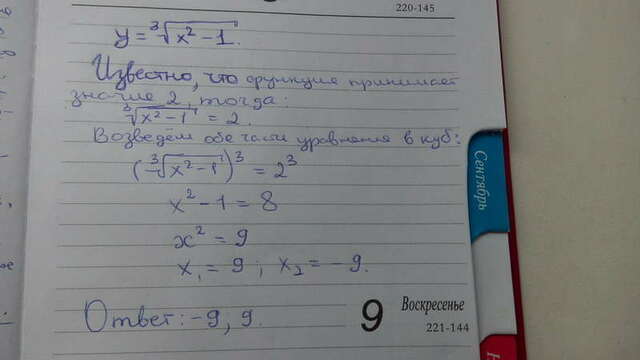 220-145
y = ∛(x² - 1).
Известно, что функция принимает
значие 2, тогда:
∛(x² - 1) = 2.
Возведём обе части уравнения в куб:
(∛(x² - 1))³ = 2³
x² - 1 = 8
x² = 9
x₁ = 9; x₂ = -9.
Ответ: -9, 9.
Сентябрь
9 Воскресенье
221-144